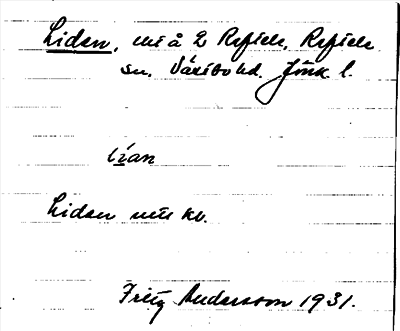 Lidan, mi å 2 Reftele, Reftele
sn. Västbo hd. Jönk l.
li̱an
Lidan mi kv.
Fritz Andersson 1931.